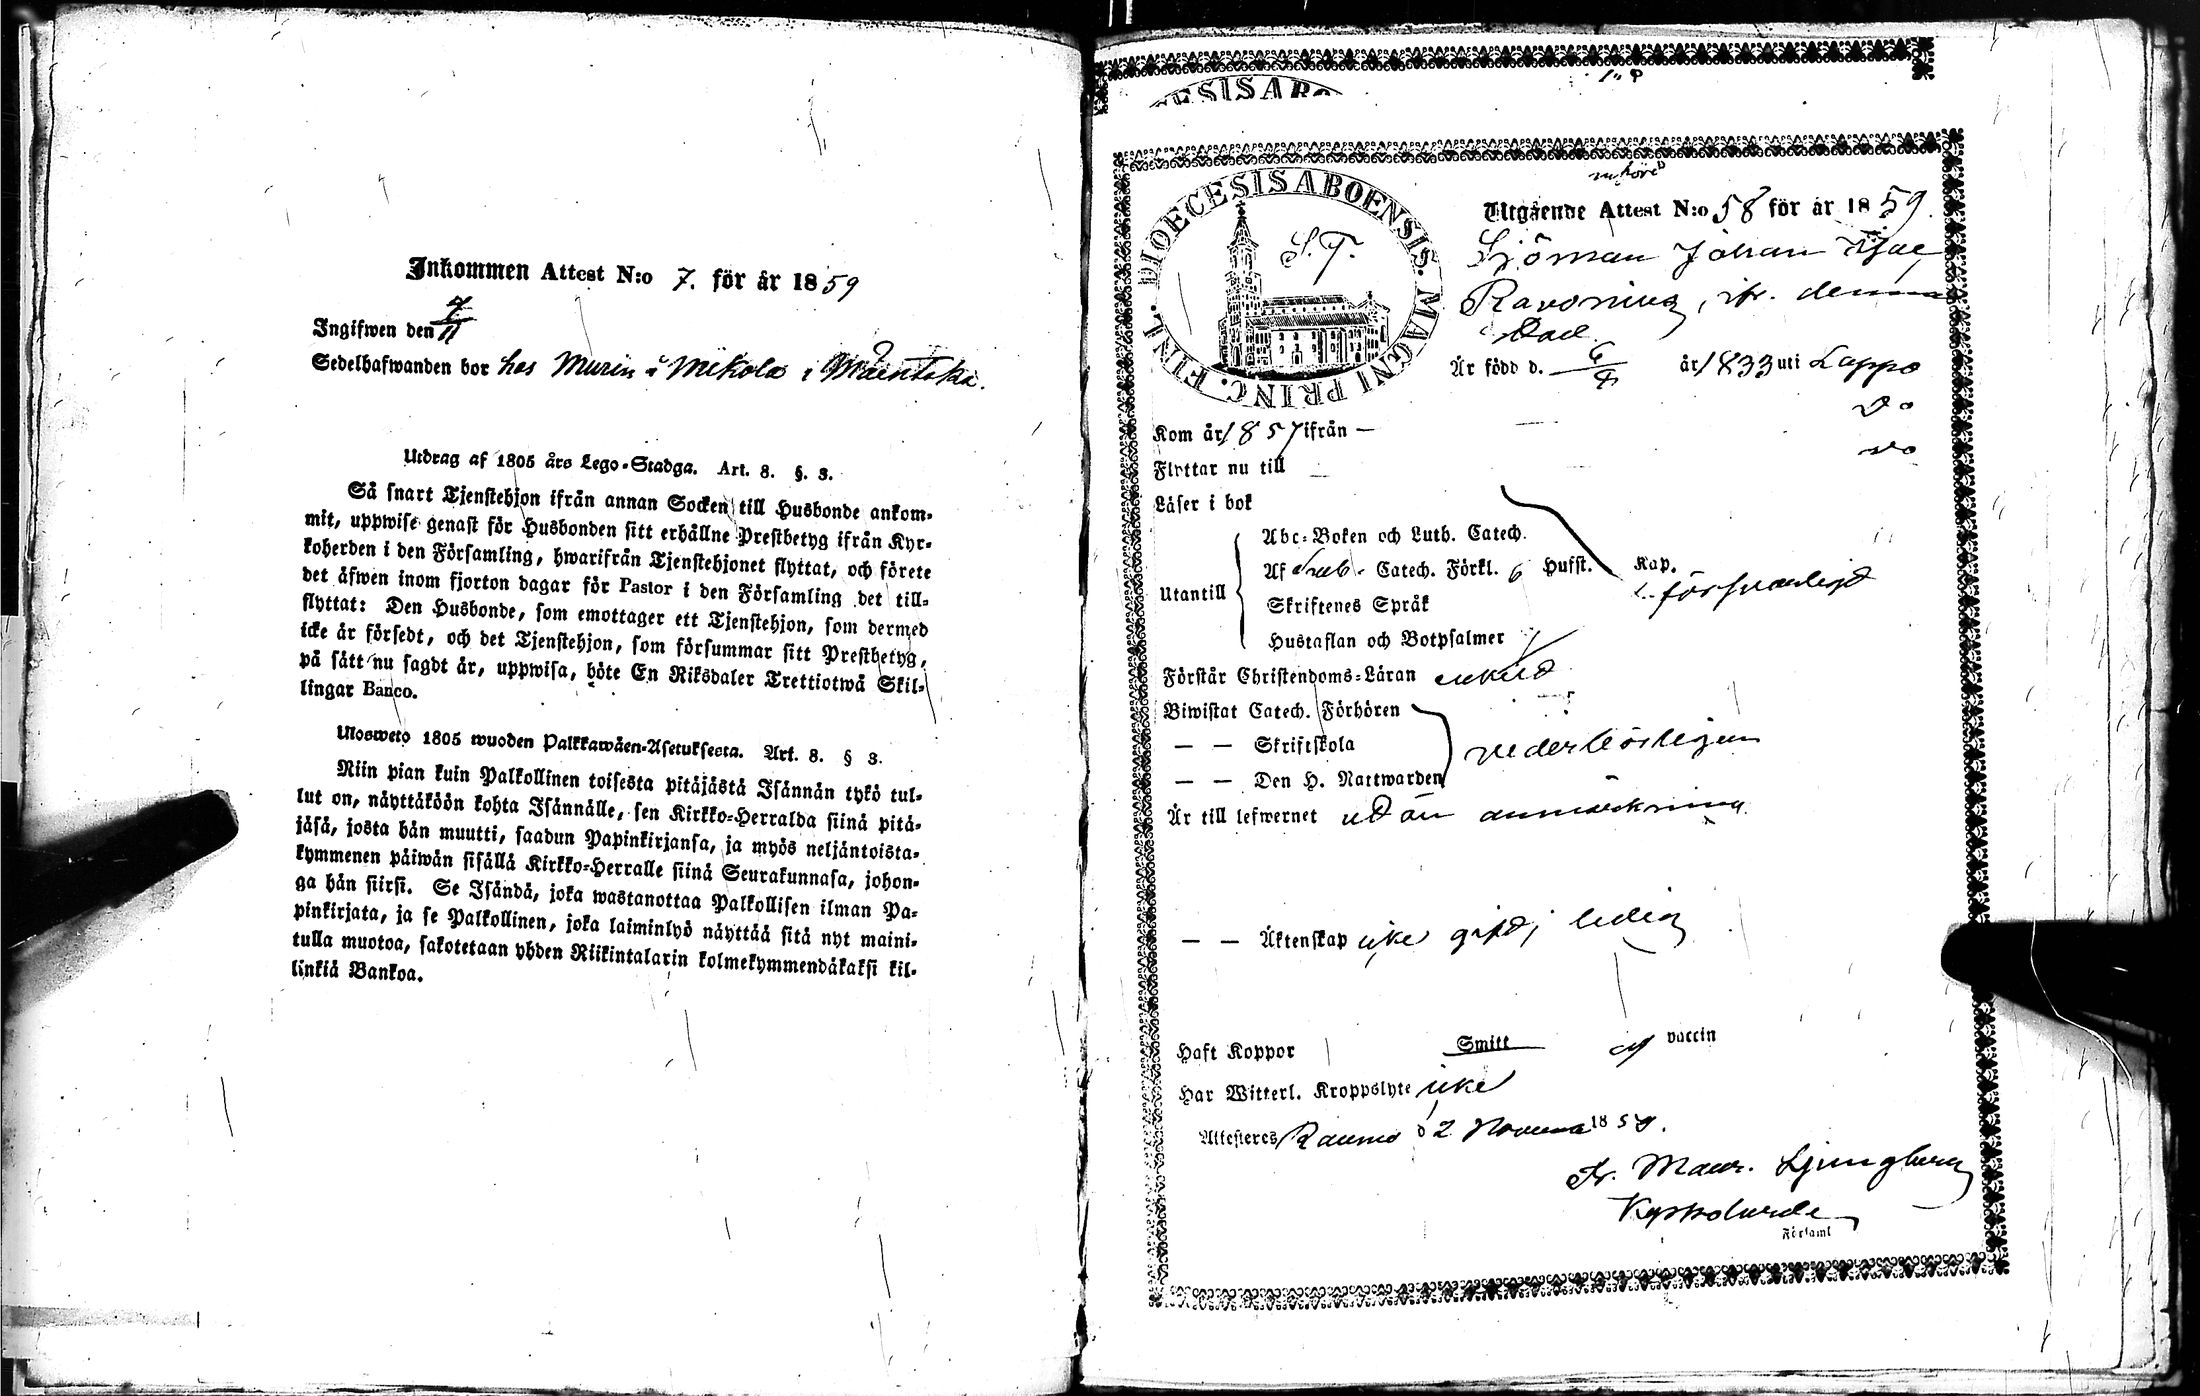 Inkommen Attest N:o 7. för år 1859
Ingifwen den 7/11
Sedelhafwanden bor hos Murin å Mikola i Mäentaka.
Utdrag af 1805 års Lego-Stadga. Art. 8. §. 3.
Så snart Tjenstehjon ifrån annan Socken till Husbonde ankom-
mit, uppwise genast för Husbonden sitt erhållne Prestbetyg ifrån Kyr-
koherden i den Församling, hwarifrån Tjenstehjonet flyttat, och förete
det äfwen inom fjorton dagar för Pastor i den Församling det till-
flyttat: Den Husbonde, som emottager ett Tjenstehjon, som dermed
icke är försedt, och det Tjenstehjon, som försummar sitt Prestbetyg,
på sätt nu sagdt är, uppwisa, böte En Riksdaler Trettiotwå Skil-
lingar Banco.
Ulosweto 1805 wuoden Palkkawäen-Asetuksesta. Art. 8. § 3.
Niin pian kuin Palkollinen toisesta pitäjästä Isännän tykö tul-
lut on, näyttäköön kohta Isännälle, sen Kirkko-Herralda siinä pitä-
jäsä, josta hän muutti, saadun Papinkirjansa, ja myös neljäntoista-
kymmenen päiwän sisällä Kirkko-Herralle siinä Seurakunnasa, johon-
ga hän siirsi. Se Isändä, joka wastanottaa Palkollisen ilman Pa-
pinkirjata, ja se Palkollinen, joka laiminlyö näyttää sitä nyt maini-
tulla muotoa, sakotetaan yhden Riikintalarin kolmekymmendäkaksi kil-
linkiä Bankoa.
DIOECESIS ABOENSIS. MAGNI PRINC. FINL.
S.T.
Utgående Attest N:o 58 för år 1859.
Sjöman Johan
Är född d. år 1833 uti Lappo
Kom år 1857 ifrån — Do
Flyttar nu till — Do
Läser i bok
Abc-Boken och Luth. Catech.
Af Catech. Förkl. 6 Hufst. Kap.
försvarligt
Utantill
Skriftenes Språk
Hustaflan och Botpsalmer
Förstår Christendoms-Läran enkelt
Biwistat Catech. Förhören
— — Skriftskola vederbörligen
— — Den H. Nattwarden
Är till lefwernet utan anmärkning
— — Äktenskap icke gift, ledig
Haft Koppor Smitt ej vaccin
Har Witterl. Kroppslyte icke
Attesteras Raumo d 2 1859.
Fr. Maur. Ljungberg
Kyrkoherde
Församl